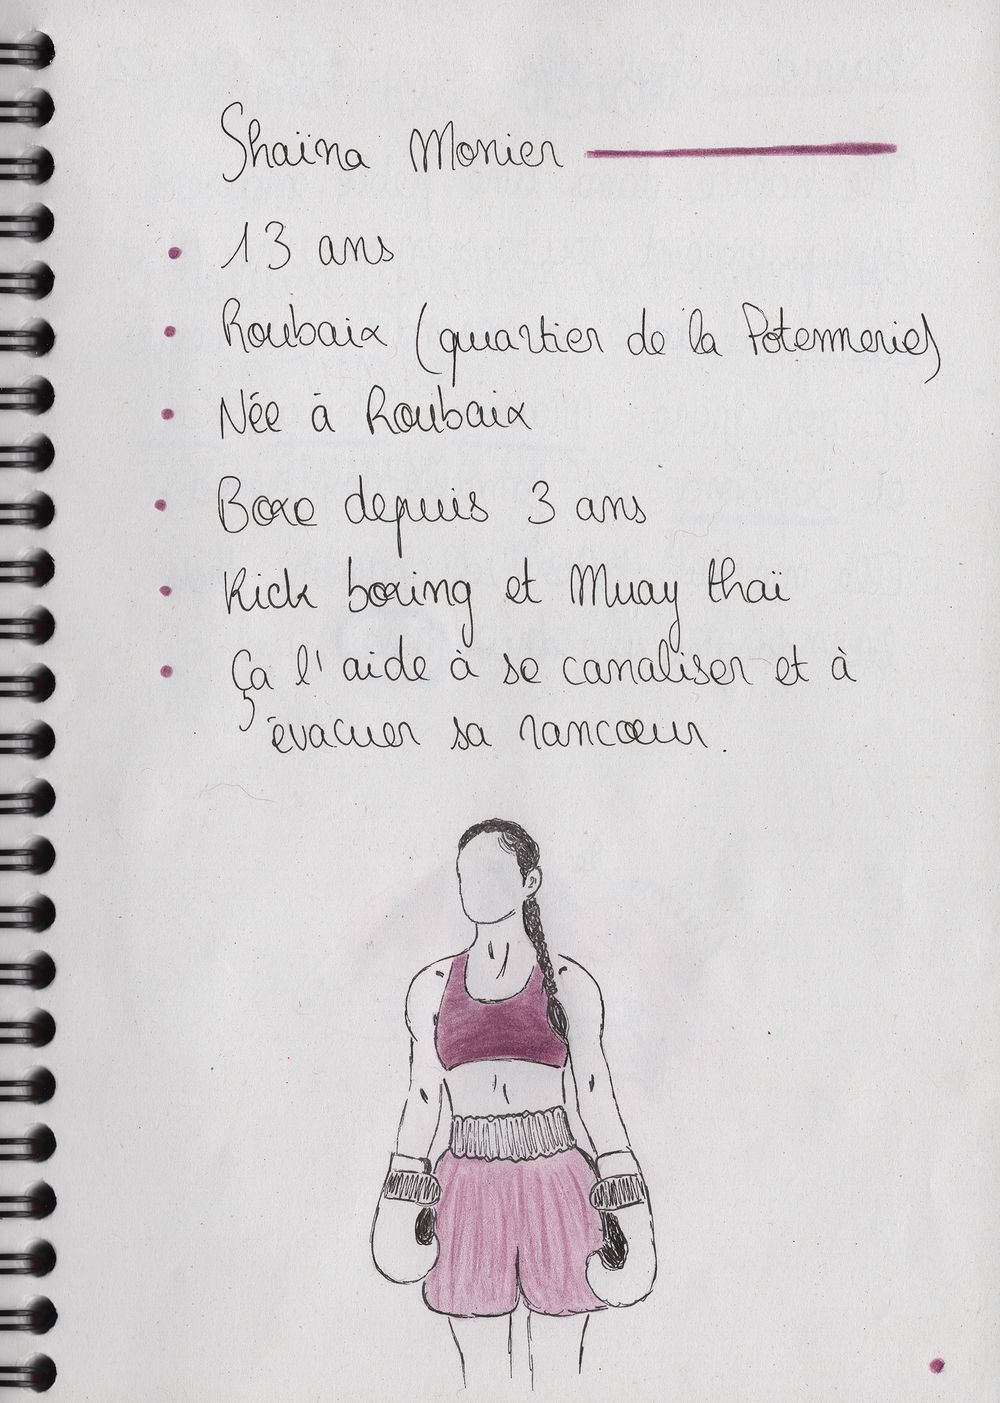 Shaïna Monier
• 13 ans
• Roubaix (quartier de la Potennerie)
• Née à Roubaix
• Boxe depuis 3 ans
• Kick boxing et Muay thaï
• Ça l'aide à se canaliser et à
évacuer sa rancœur.